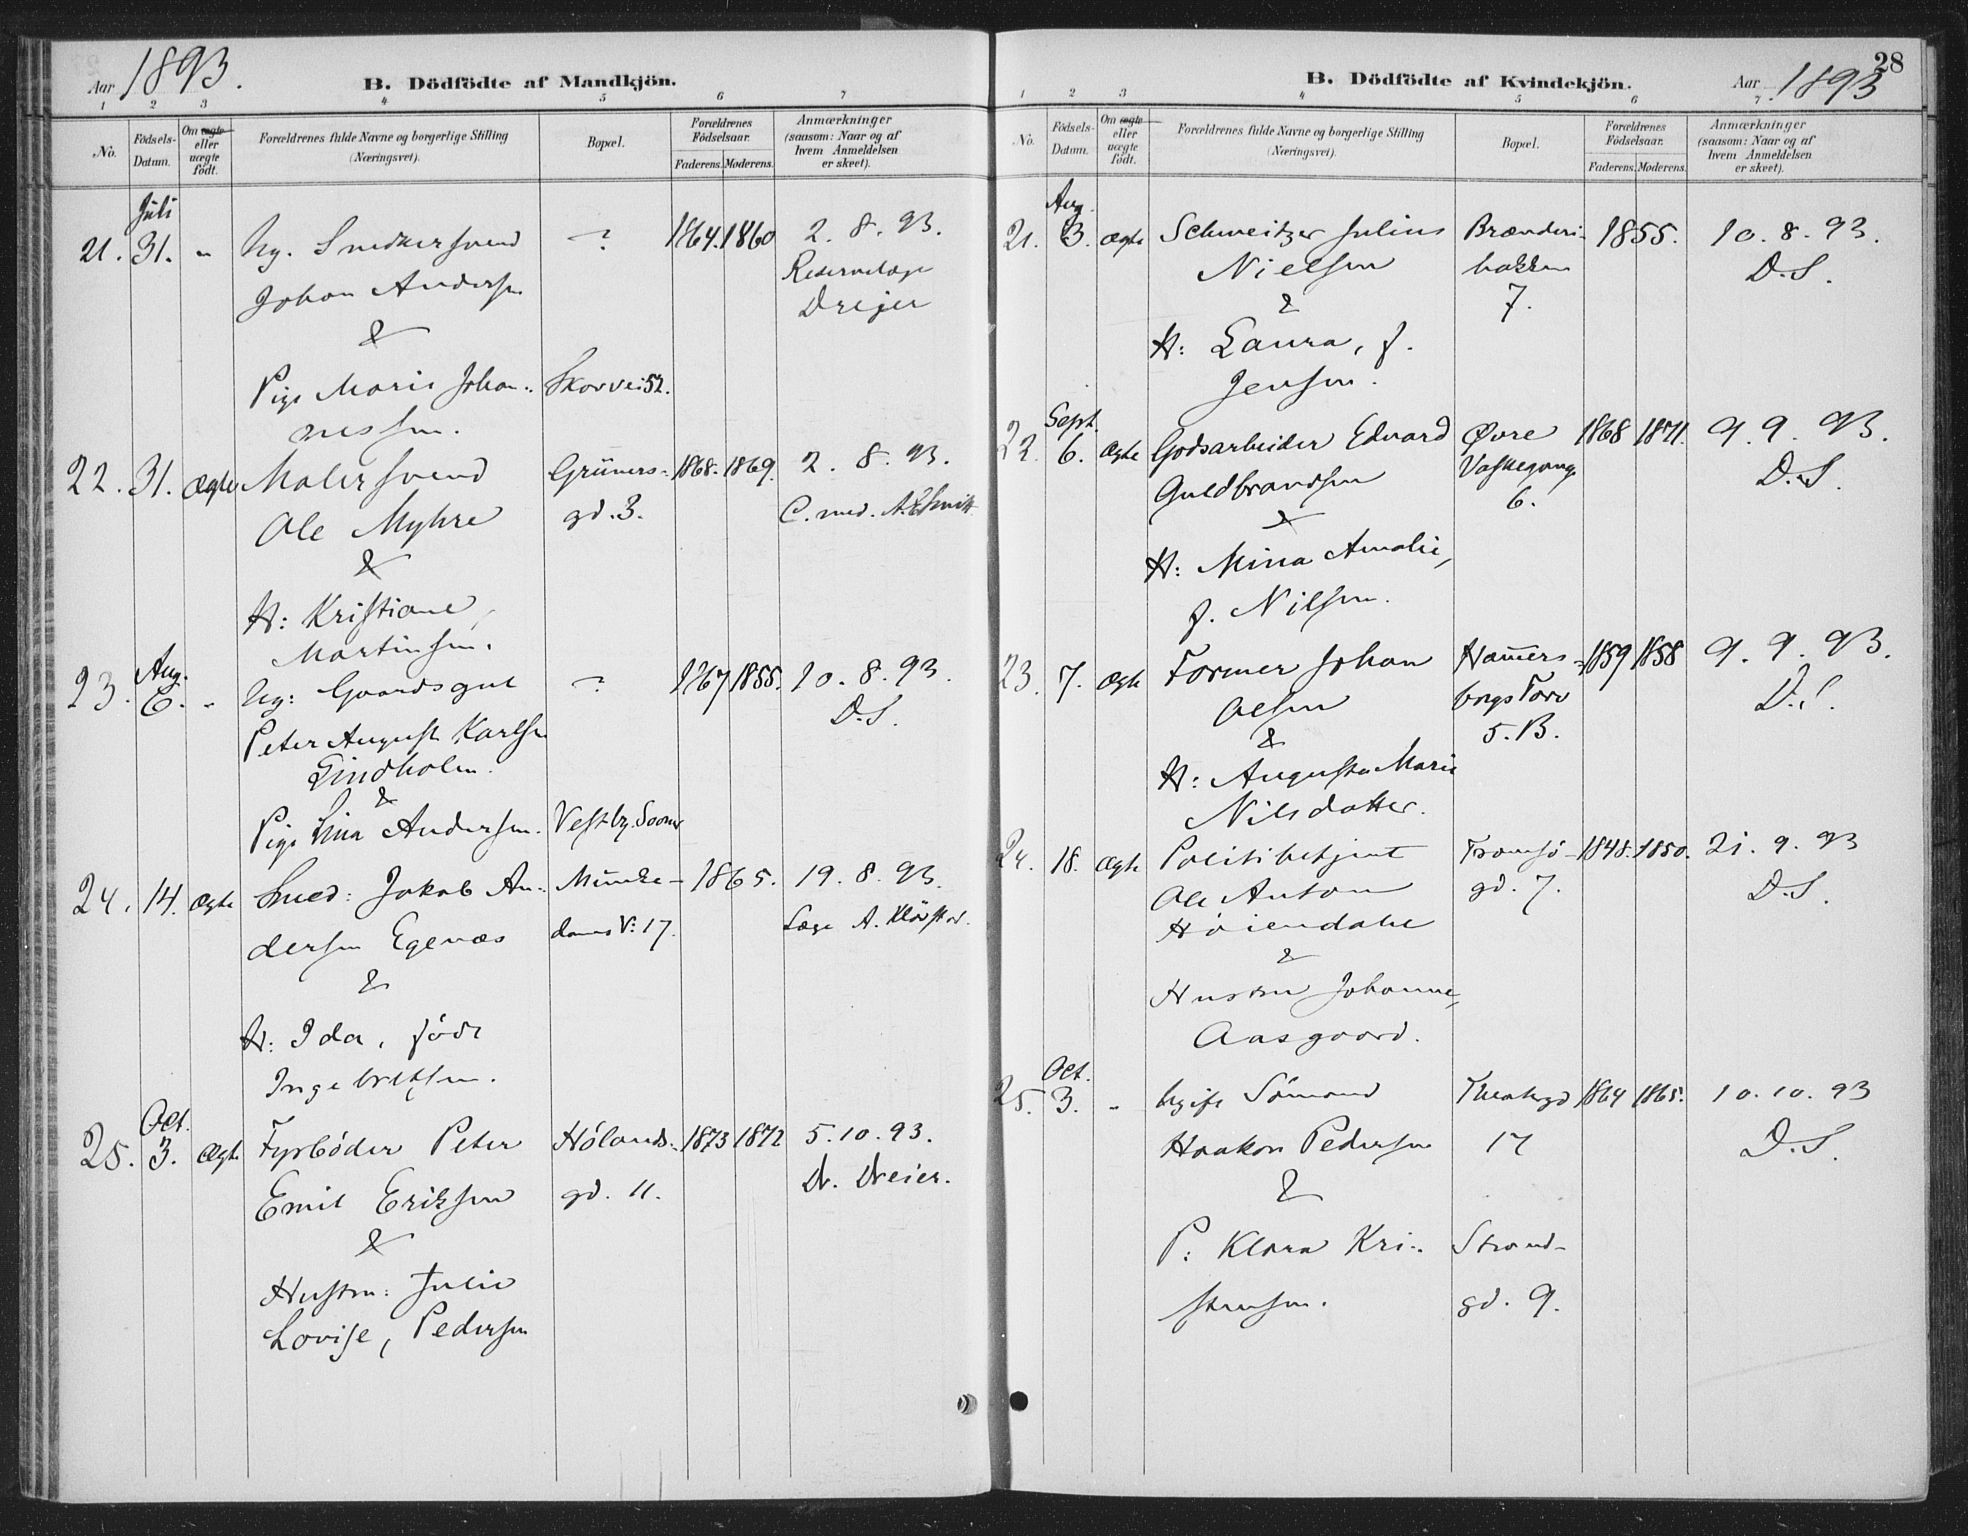 Aar 1893.
B. Dödfödte af Mandkjön.
1 2 3 4 5 6 7
No.
Födsels-
Datum.
Om ægte
eller
uægte
födt.
Forældrenes fulde Navne og borgerlige Stilling
(Næringsvei).
Bopæl.
Forældrenes
Födselsaar.
Faderens. Moderens.
Anmærkninger
(saasom: Naar og af
hvem Anmeldelsen
er skeet).
Juli
21. 31. " Ug. Snedkersvend ? 1864. 1860 2. 8. 93.
Johan Andersen Reservelæge
& Drejer
Pige Marie Johan- Skovvei 52.
nessen.
22. 31. Ægte Malersvend Grüners- 1868. 1869. 2. 8. 93.
Ole Myhre gd. 3. C. med. A. E. Smitt
&
H: Kristiane,
Martinsen.
Aug.
23. 6. " Ug: Gaardsgut ? 1867 1855. 10. 8. 93.
Peter August Karlsen D.S.
Lindholm.
&
Pige Lina Andersen. Vestby. Sooner
24. 14. Ægte Smed: Jakob An- Munke- 1865. 19. 8. 93.
dersen Egenæs dams V: 17. Læge A.
&
H: Ida, föde
Ingebretsen.
Oct.
25. 3. Ægte Fyrböder Peter Hölands- 1873 1872 5. 10. 93.
Emil Eriksen gd. 11. Dr. Dreier.
&
Hustru: Julie
Lovise, Pedersen
28
B. Dödfödte af Kvindekjön.
Aar 1893
1 2 3 4 5 6 7
No.
Födsels-
Datum.
Om ægte
eller
uægte
födt.
Forældrenes fulde Navne og borgerlige Stilling
(Næringsvei).
Bopæl.
Forældrenes
Födselsaar.
Faderens. Moderens.
Anmærkninger
(saasom: Naar og af
hvem Anmeldelsen
er skeet).
Aug.
21. 3. Ægte Schweitzer Julius Brænderi- 1855. 10. 8. 93.
Nielsen bakken D.S.
& 7.
H: Laura, f.
Jensen.
Sept.
22. 6. Ægte Godsarbeider Edvard Övre 1868 1871. 9. 9. 93.
Guldbrandsen Vaskegang D.S.
& 6.
H: Mina Amalie,
f. Nilsen.
23. 7. Ægte Former Johan Hamers- 1859 1858 9. 9. 93.
Olsen borgs Torv D.S.
& 5. B.
H: Augusta Marie
Nilsdatter.
24. 18. Ægte Politibetjent Tromsö- 1848. 1850. 21. 9. 93
Ole Anton gd. 7. D.S.
Höiendahl
&
Hustru Johanne,
Aasgaard.
Oct.
25. 3. " Ugift Sömand Theatergd 1864 1865. 10. 10. 93
Haakon Pedersen 17 D.S.
&
P: Klara Kri- Strand-
stensen. gd. 9.